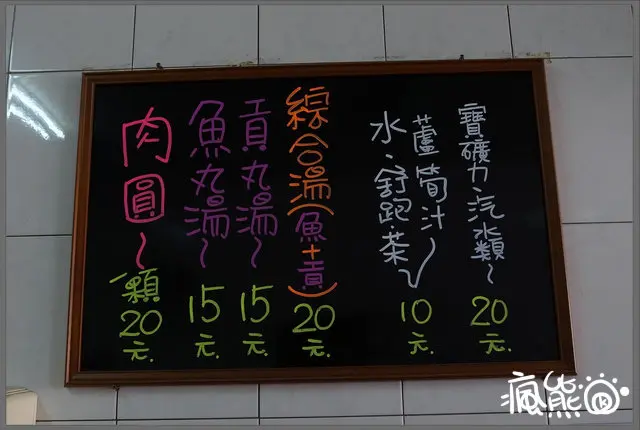 寶礦力、汽水類~20元.
蘆筍汁/
水、舒跑、茶✓10元.
綜合湯(魚+貢)20元.
貢丸湯~15元.
魚丸湯~15元.
肉圓~1顆20元.
瘋熊